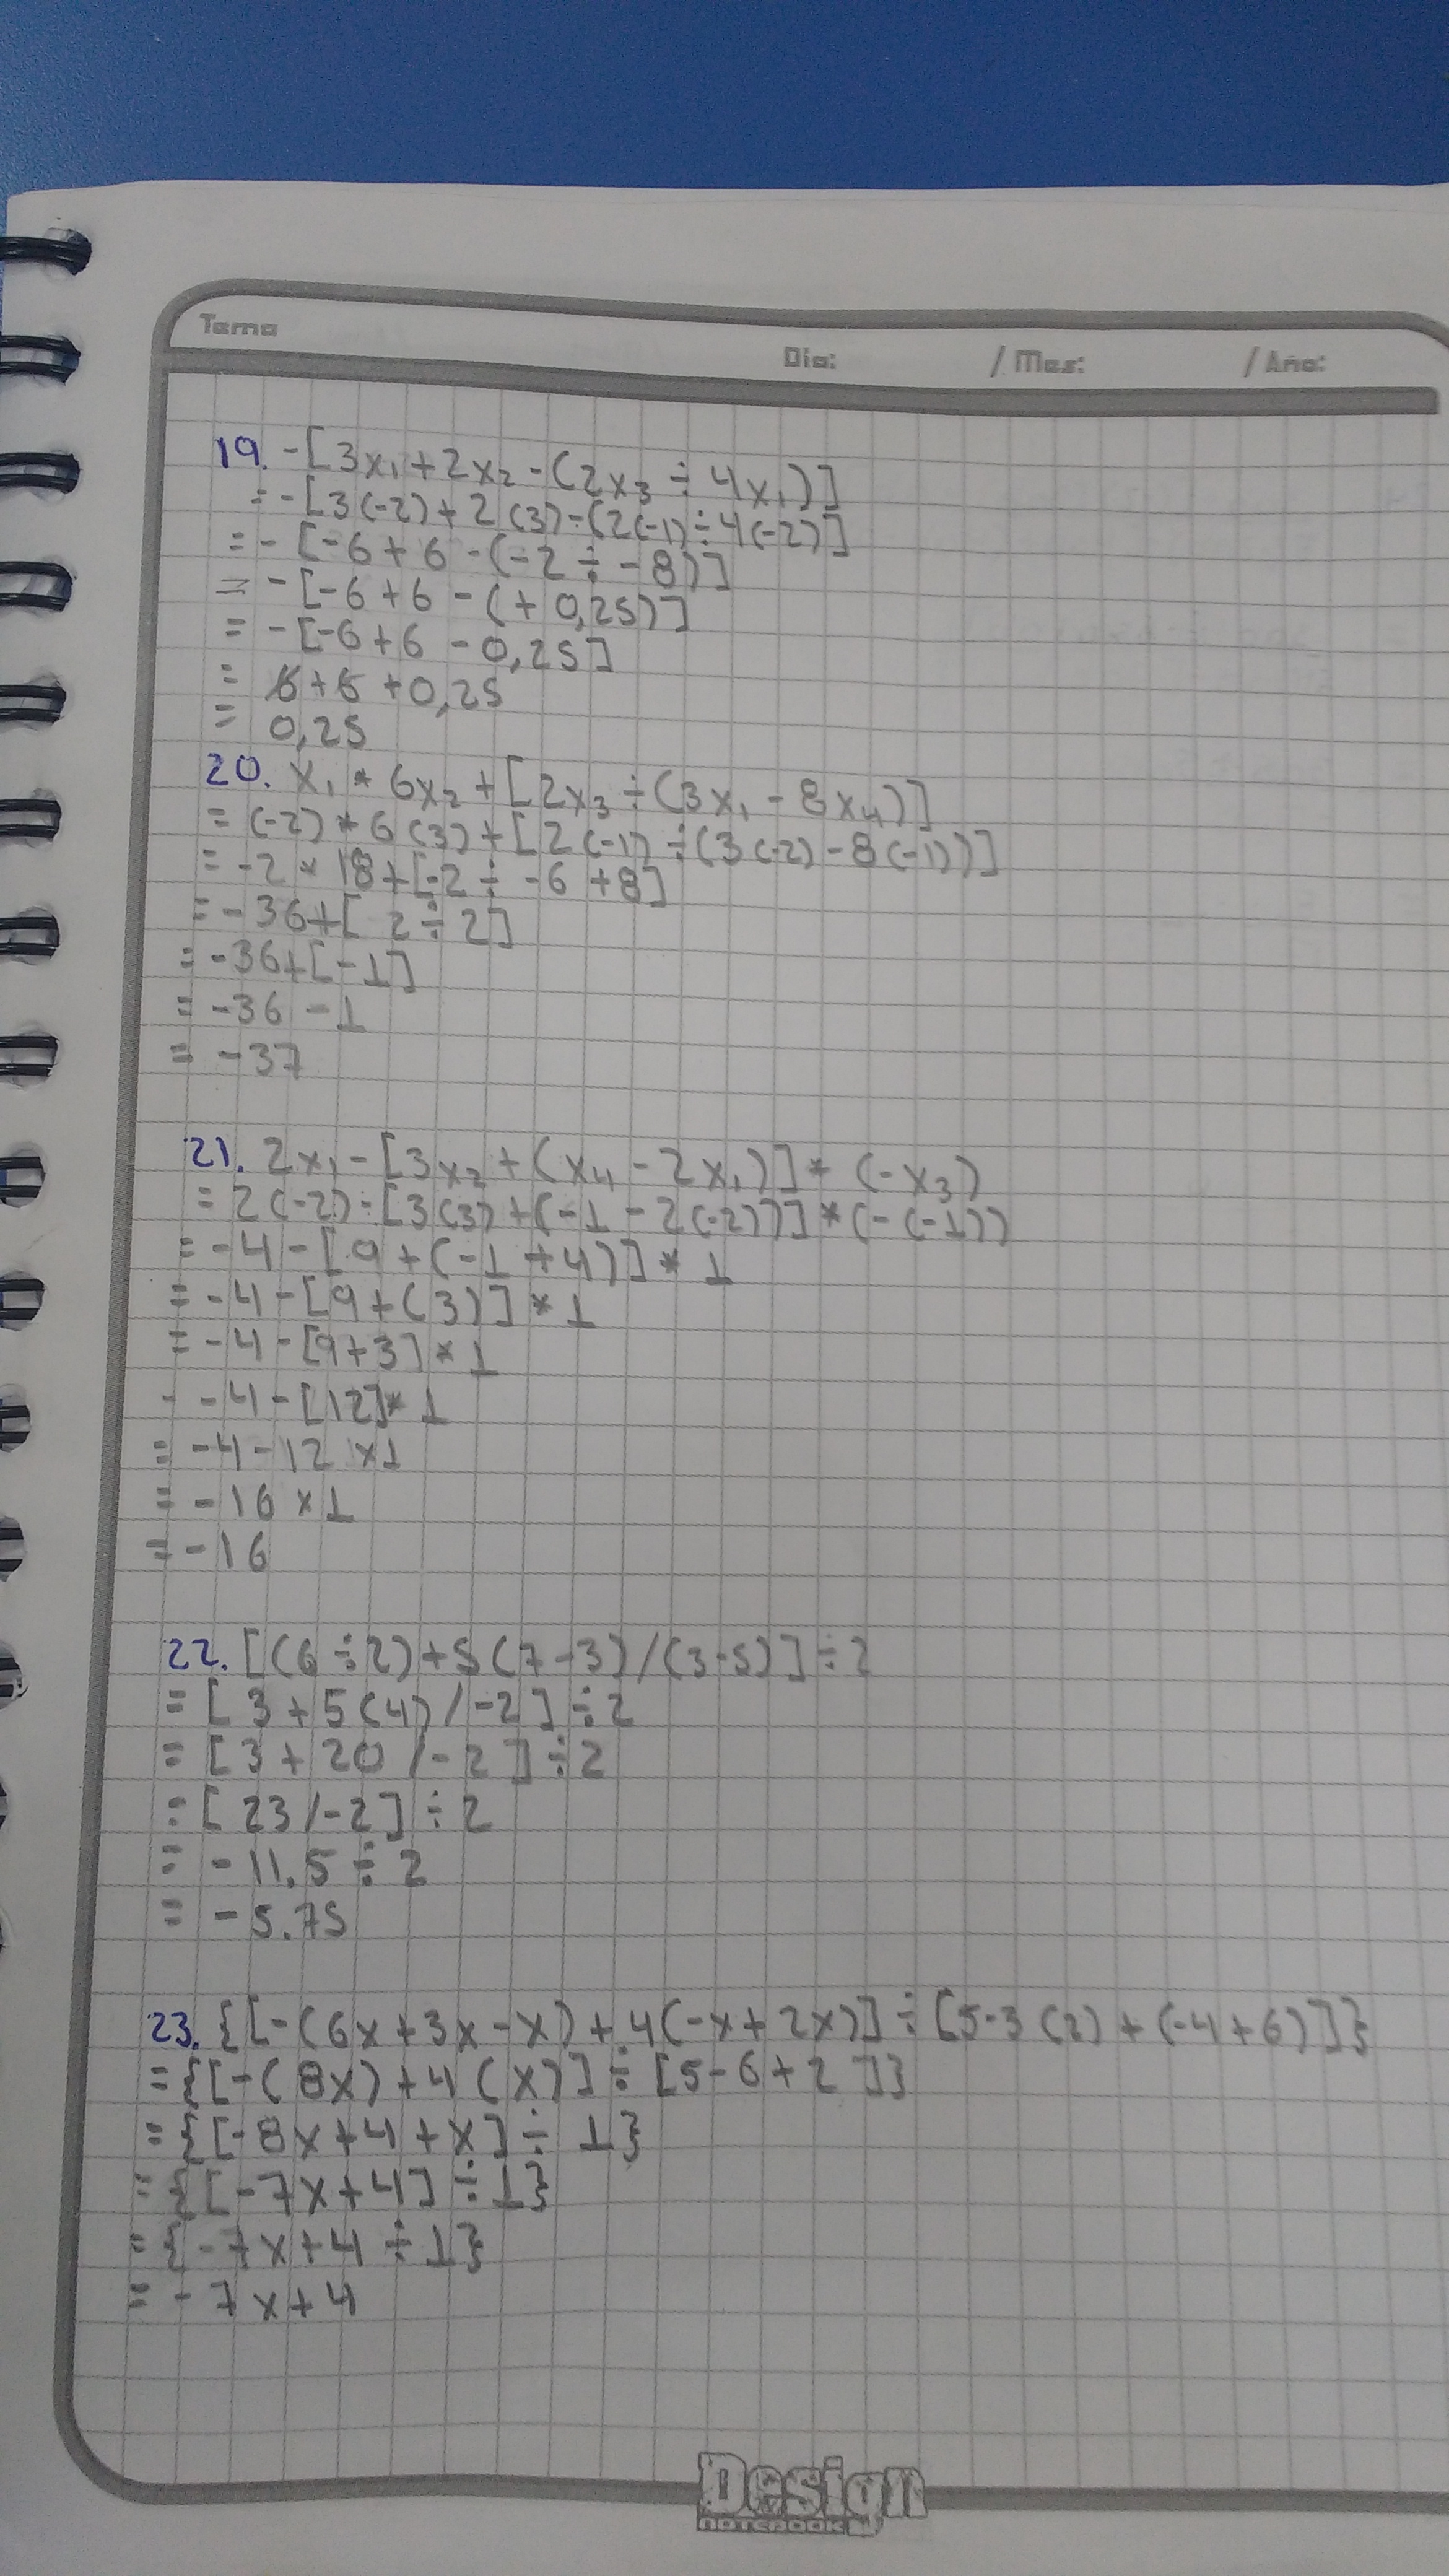 Tema
Dia: / Mes: / Año:
19. -[3x₁+2x₂-(2x₃÷4x₁)]
=-[3(-2)+2(3)-(2(-1)÷4(-2)]
=-[-6+6-(-2÷-8)]
=-[-6+6-(+0,25)]
=-[-6+6-0,25]
= 6+6+0,25
= 0,25
20. x₁*6x₂+[2x₃÷(3x₁-8x₄)]
=(-2)*6(3)+[2(-1)÷(3(-2)-8(-1))]
=-2*18+[-2÷-6+8]
=-36+[2÷2]
=-36+[-1]
=-36-1
=-37
21. 2x₁-[3x₂+(x₄-2x₁)]*(-x₃)
=2(-2)-[3(3)+(-1-2(-2))]*(-(-1))
=-4-[9+(-1+4)]*1
=-4-[9+(3)]*1
=-4-[9+3]*1
- -4-[12]*1
=-4-12x1
=-16x1
=-16
22. [(6÷2)+5(7-3)/(3-5)]÷2
=[3+5(4)/-2]÷2
=[3+20/-2]÷2
=[23/-2]÷2
=-11.5÷2
=-5.75
23. {[-(6x+3x-x)+4(-x+2x)]÷[5-3(2)+(-4+6)]}
={[-(8x)+4(x)]÷[5-6+2]}
={[-8x+4+x]÷1}
={[-7x+4]÷1}
={-7x+4÷1}
=-7x+4
Design
NOTEBOOK